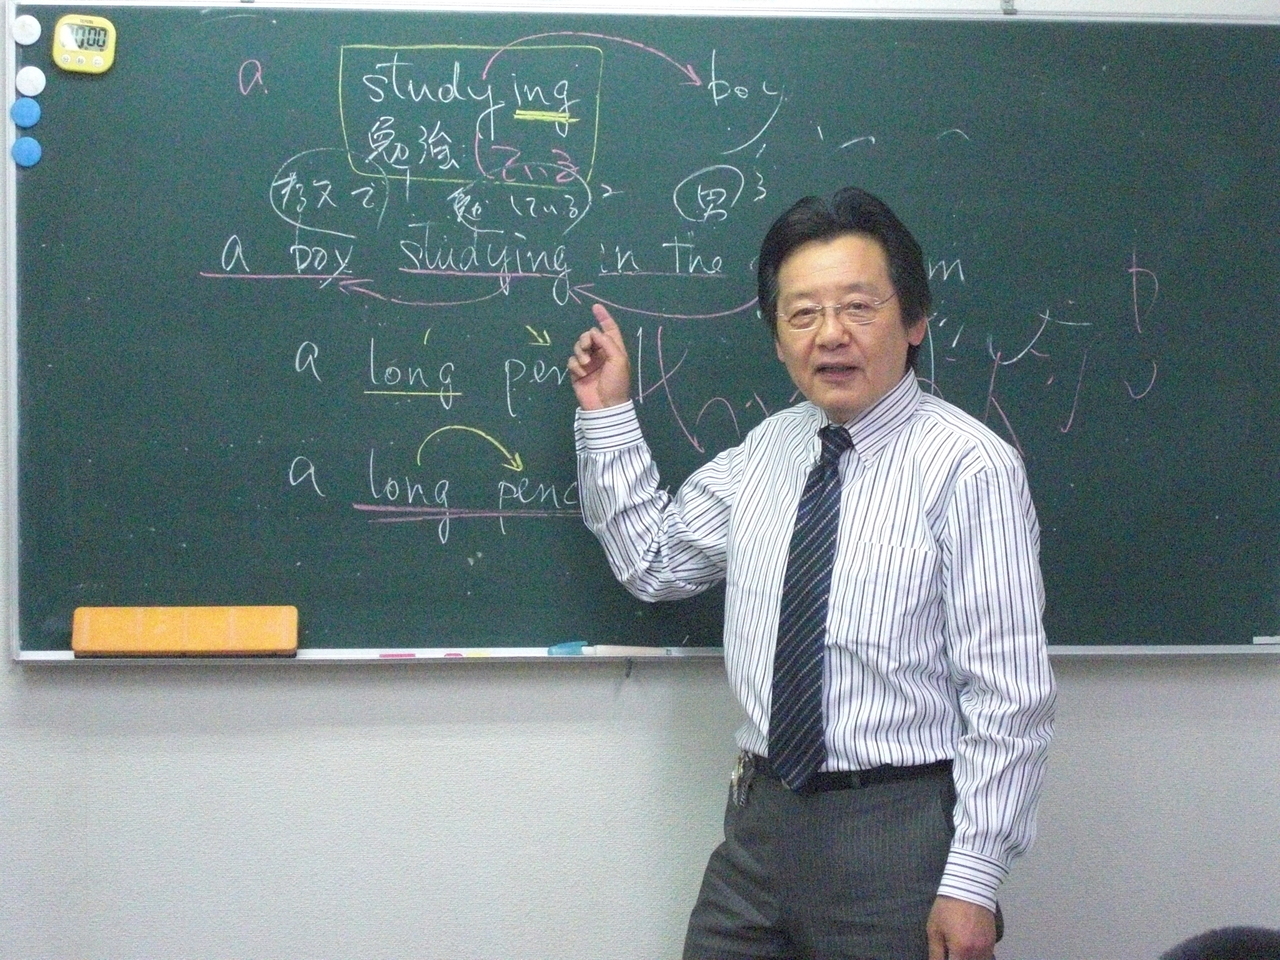 a studying boy
勉強 ている
教室で 1 勉強している 2 男 3
a boy studying in the
a long pen
a long penc